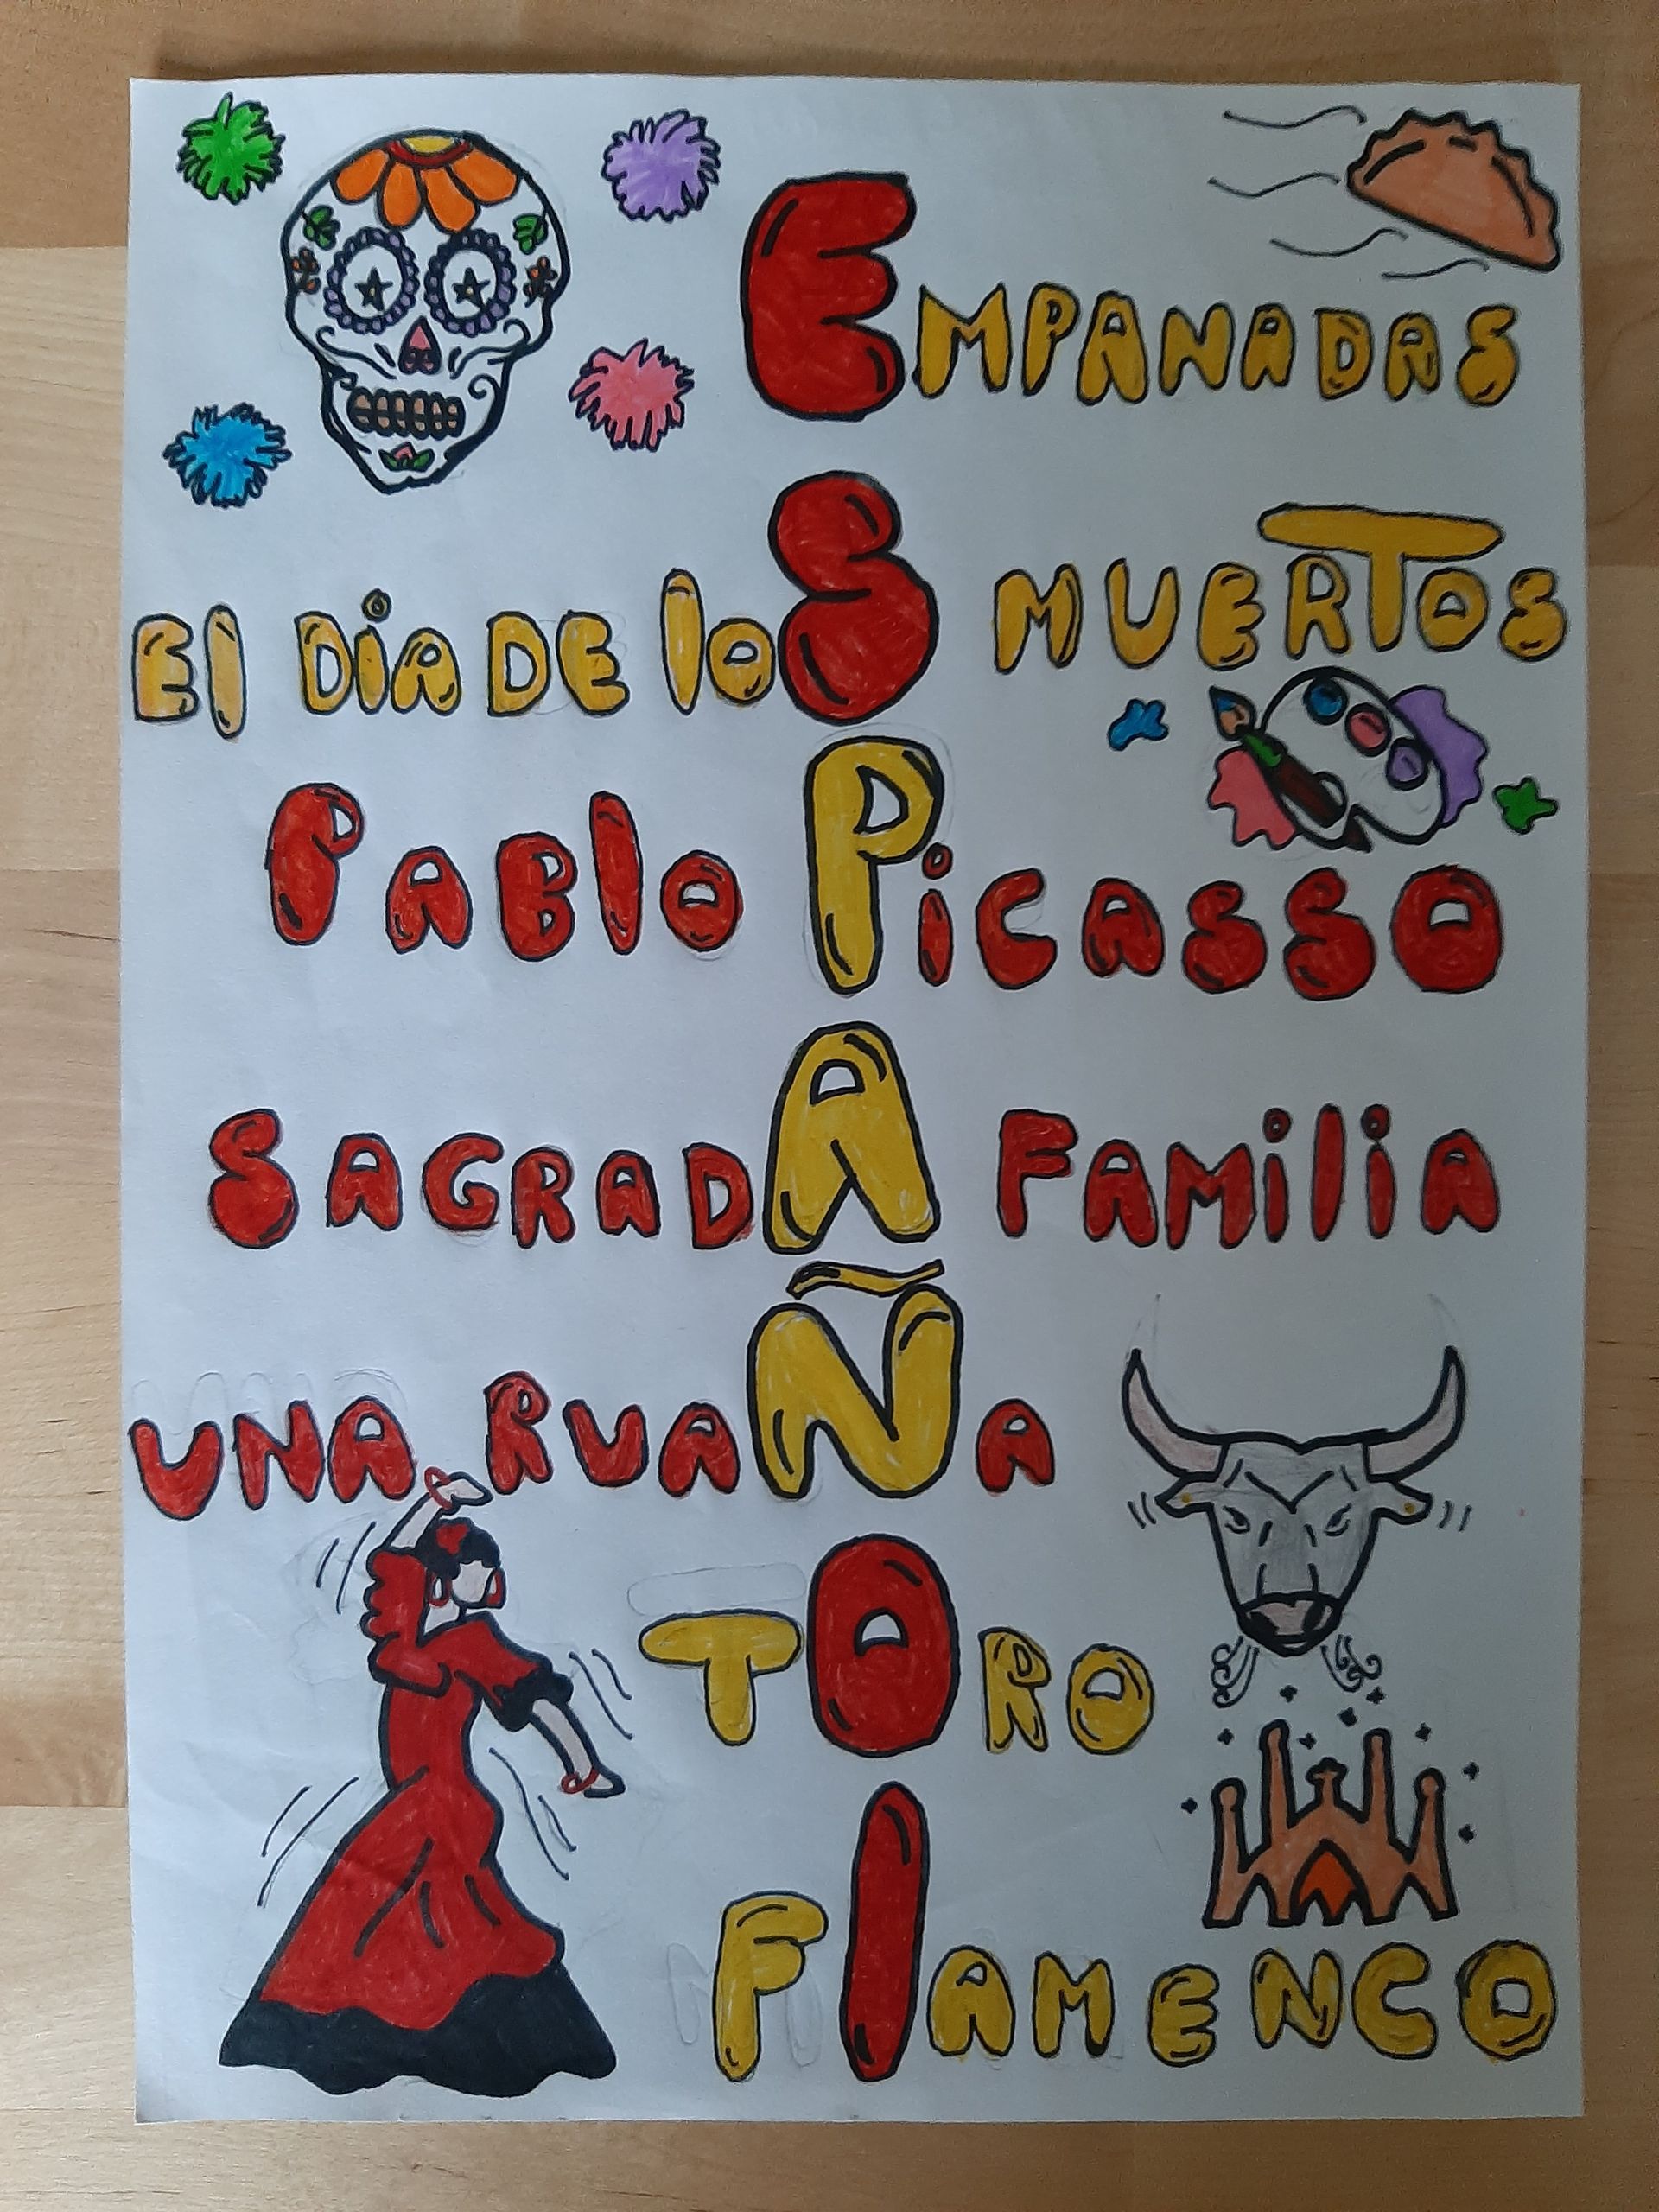 EMPANADAS
El DíA DE loS MUERTOS
PABlO PiCASSO
SAGRADA FAMiliA
UNA RUAÑA
TORO
FlAMENCO